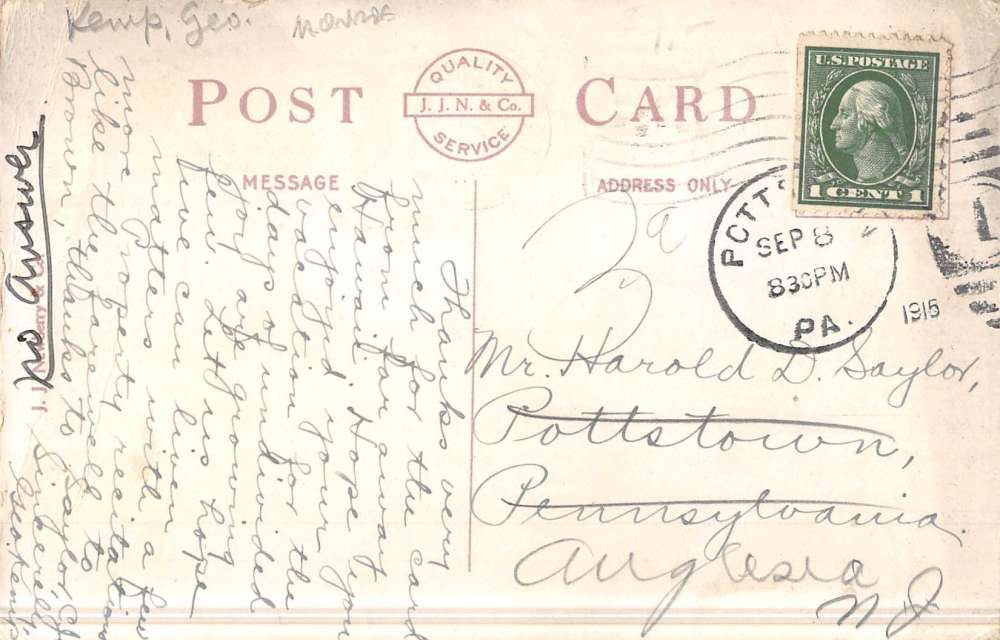 Kemp, Geo.
POST CARD
QUALITY
J. J. N. & Co.
SERVICE
U.S. POSTAGE
1 CENT 1
MESSAGE
ADDRESS ONLY
SEP 8
830PM
PA.
1915
Thanks very
much for the card
from far away
Hawaii. Hope you
enjoyed your
vacation for the
days of undivided
joy are growing
few. Let us hope
we can liven
matters with a few
more property recitations
like the farewell to
Brown, thanks to Saylor,
Sincerely,
Geo Kemp
Mr. Harold D. Saylor,
Pottstown,
Pennsylvania.
Anglesea
N J
no answer